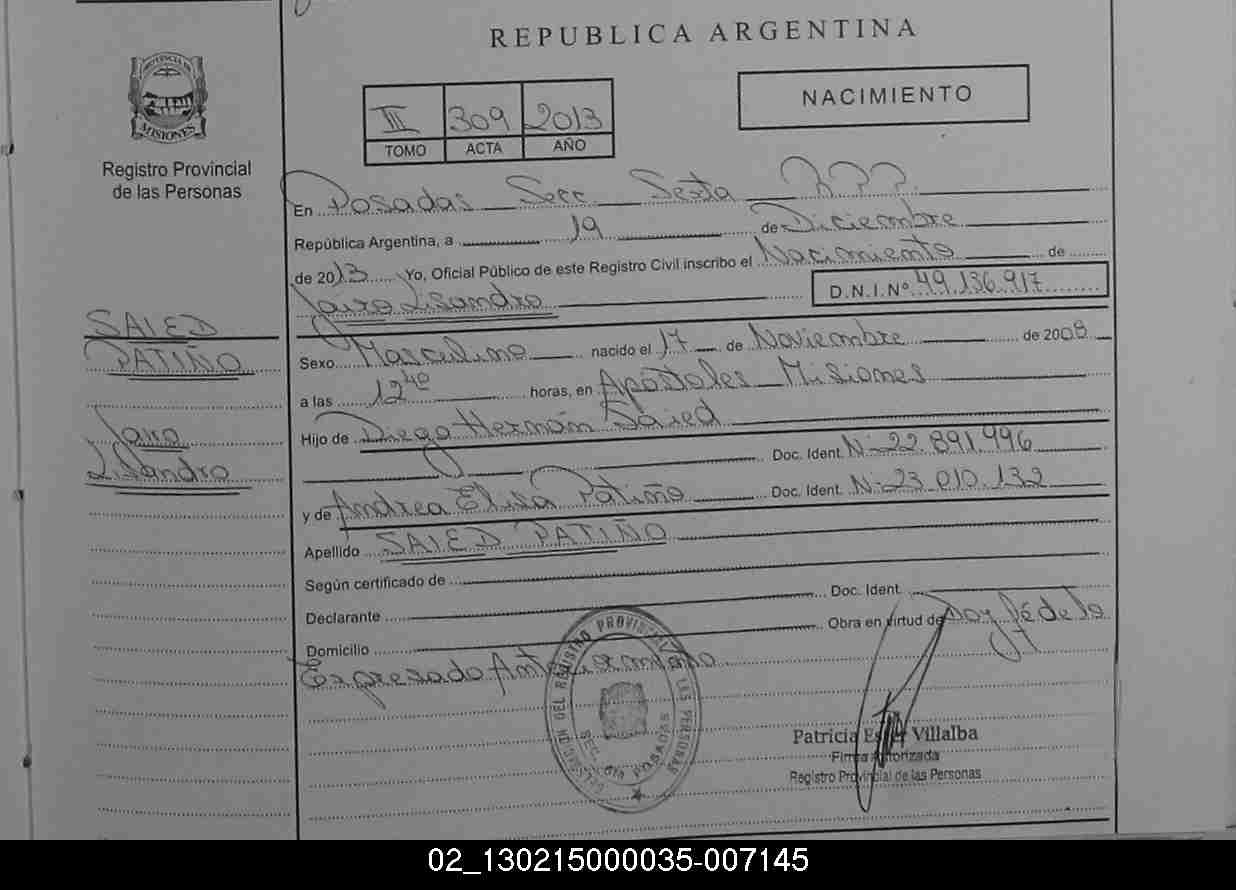 REPUBLICA ARGENTINA
PROVINCIA DE
MISIONES
Registro Provincial
de las Personas
III 309 2013
TOMO ACTA AÑO
NACIMIENTO
En Posadas Secc. Sexta
República Argentina, a 19 de Diciembre
de 2013 Yo, Oficial Público de este Registro Civil inscribo el Nacimiento de
Jairo Lisandro D.N.I.Nº 49.136.917
SAIED
PATIÑO
Jairo
Lisandro
Sexo Masculino nacido el 17 de Noviembre de 2008
a las 12 40 horas, en Apóstoles Misiones
Hijo de Diego Hernán Saied
Doc. Ident. N: 22.891.996
y de Andrea Elisa Patiño Doc. Ident. N: 23.010.132
Apellido SAIED PATIÑO
Según certificado de
Declarante Doc. Ident.
Domicilio Obra en virtud de
Expresado Anteriormente
DEL REGISTRO PROVINCIAL LAS PERSONAS
POSADAS
Patricia Villalba
Firma Autorizada
Registro Provincial de las Personas
02_130215000035-007145